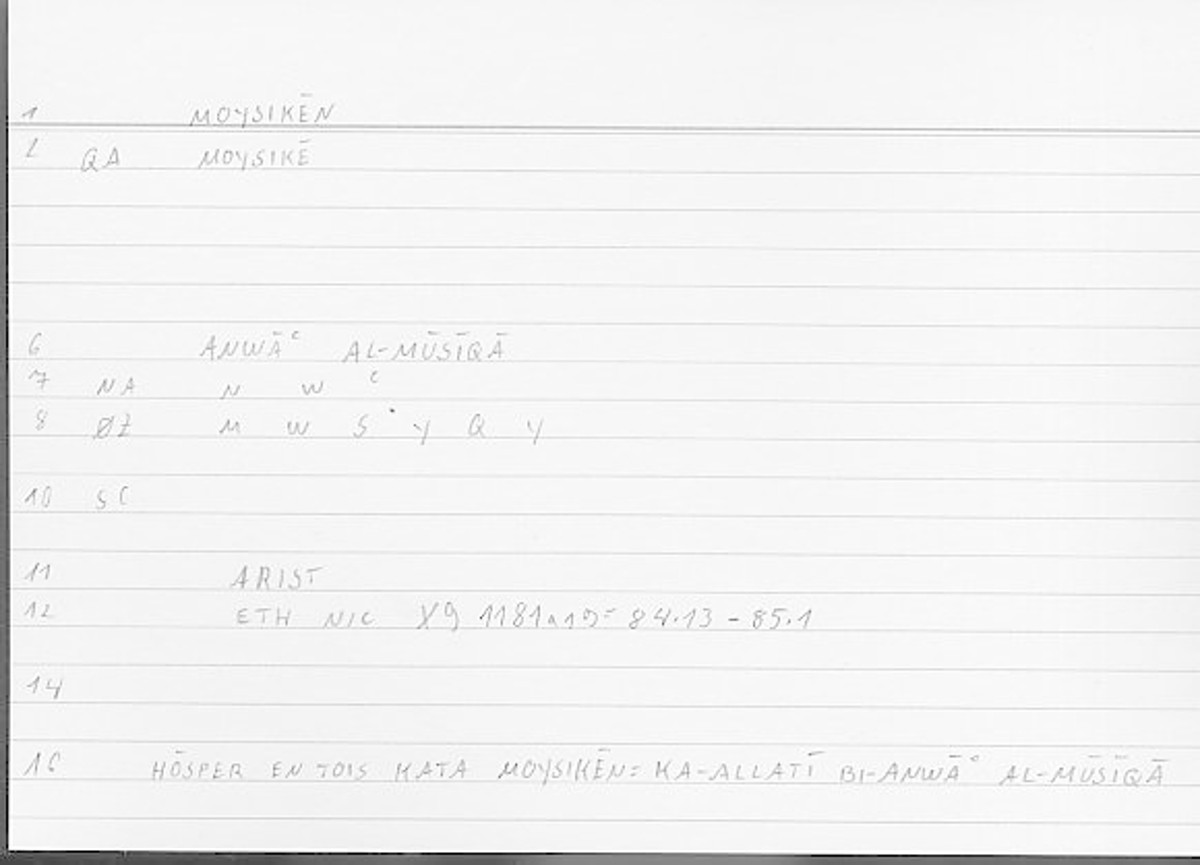 1 MOYSIKĒN
2 QA MOYSIKĒ
6 ANWĀʿ AL-MŪSĪQĀ
7 NA N W ʿ
8 ØZ M W S Y Q Y
10 SC
11 ARIST
12 ETH NIC X9 1181a19= 84.13 - 85.1
14
16 HŌSPER EN TOIS KATA MOYSIKĒN= KA-ALLATĪ BI-ANWĀʿ AL-MŪSĪQĀ